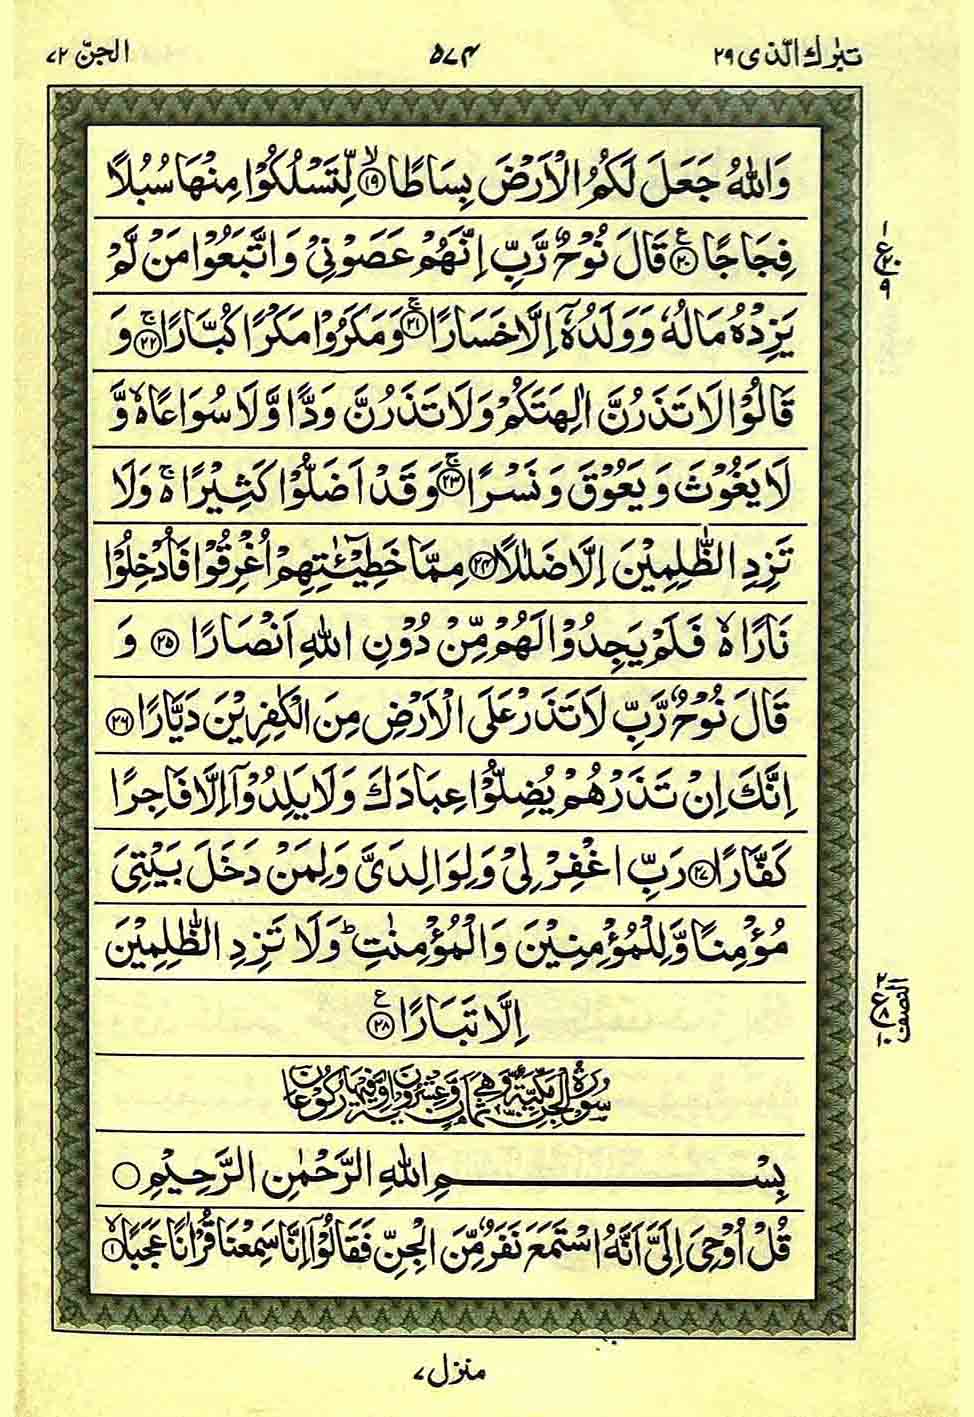 تبٰرك الّذی ٢٩
۵۷۴
الجنّ ۷۲
وَاللّٰهُ جَعَلَ لَكُمُ الْاَرْضَ بِسَاطًا ۙ﴿۱۹﴾ لِّتَسْلُكُوْا مِنْهَا سُبُلًا
فِجَاجًا ۧ﴿۲۰﴾ قَالَ نُوْحٌ رَّبِّ اِنَّهُمْ عَصَوْنِیْ وَاتَّبَعُوْا مَنْ لَّمْ
یَزِدْهُ مَالُهٗ وَوَلَدُهٗۤ اِلَّا خَسَارًا ۚ﴿۲۱﴾ وَمَكَرُوْا مَكْرًا كُبَّارًا ۚ﴿۲۲﴾ وَ
قَالُوْا لَا تَذَرُنَّ اٰلِهَتَكُمْ وَلَا تَذَرُنَّ وَدًّا وَّلَا سُوَاعًا ۙ۬ وَّ
لَا یَغُوْثَ وَیَعُوْقَ وَنَسْرًا ۚ﴿۲۳﴾ وَقَدْ اَضَلُّوْا كَثِیْرًا ۚ۬ وَلَا
تَزِدِ الظّٰلِمِیْنَ اِلَّا ضَلٰلًا ﴿۲۴﴾ مِمَّا خَطِیْٓـٰٔتِهِمْ اُغْرِقُوْا فَاُدْخِلُوْا
نَارًا ۙ۬ فَلَمْ یَجِدُوْا لَهُمْ مِّنْ دُوْنِ اللّٰهِ اَنْصَارًا ﴿۲۵﴾ وَ
قَالَ نُوْحٌ رَّبِّ لَا تَذَرْ عَلَی الْاَرْضِ مِنَ الْكٰفِرِیْنَ دَیَّارًا ﴿۲۶﴾
اِنَّكَ اِنْ تَذَرْهُمْ یُضِلُّوْا عِبَادَكَ وَلَا یَلِدُوْۤا اِلَّا فَاجِرًا
كَفَّارًا ﴿۲۷﴾ رَبِّ اغْفِرْ لِیْ وَلِوَالِدَیَّ وَلِمَنْ دَخَلَ بَیْتِیَ
مُؤْمِنًا وَّلِلْمُؤْمِنِیْنَ وَالْمُؤْمِنٰتِ ؕ وَلَا تَزِدِ الظّٰلِمِیْنَ
اِلَّا تَبَارًا ۧ﴿۲۸﴾
سُوْرَةُ الْجِنِّ مَكِّیَّةٌ وَّهِیَ ثَمَانٌ وَّعِشْرُوْنَ اٰیَةً وَّفِیْهَا رُكُوْعَانِ
بِسْمِ اللّٰهِ الرَّحْمٰنِ الرَّحِیْمِ
قُلْ اُوْحِیَ اِلَیَّ اَنَّهُ اسْتَمَعَ نَفَرٌ مِّنَ الْجِنِّ فَقَالُوْۤا اِنَّا سَمِعْنَا قُرْاٰنًا عَجَبًا ۙ﴿۱﴾
ع
۲۰
۹
النصف
۲
ع
۸
۱۰
منزل ۷